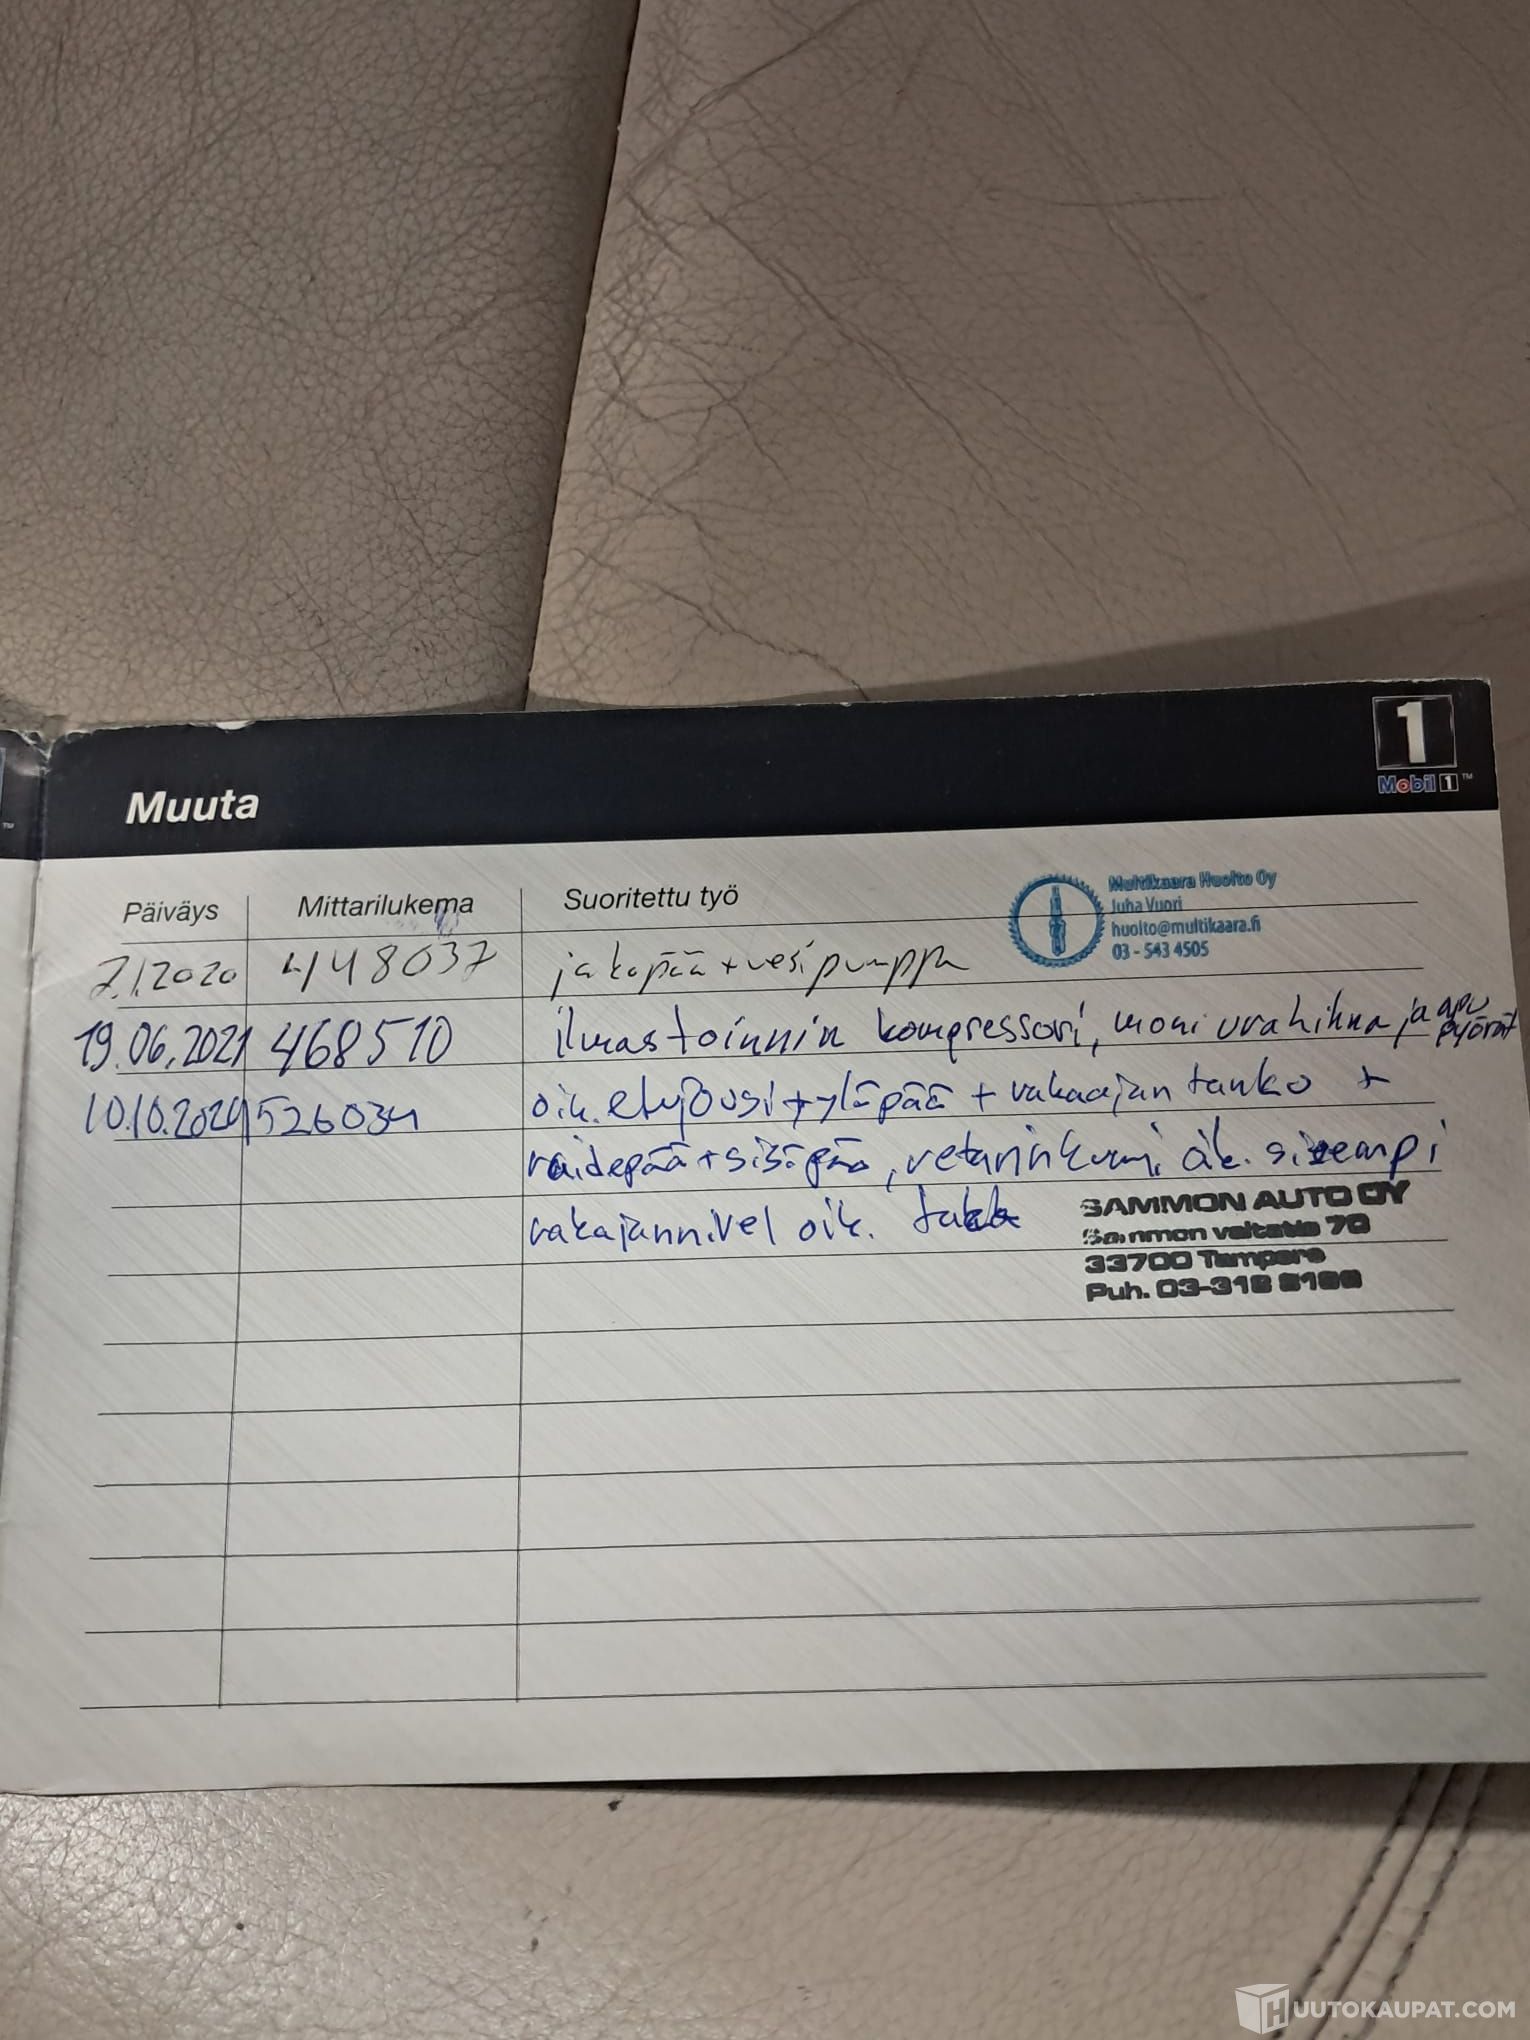 1
Mobil 1™
Muuta
™
Päiväys Mittarilukema Suoritettu työ
Multikaara Huolto Oy
Juha Vuori
huolto@multikaara.fi
03 - 543 4505
7.1.2020 448037 jakopää + vesipumppu
19.06.2021 468510 ilmastoinnin kompressori, moniurahihna ja apu
pyörät
10.10.2024 526034 oik. etujousi + yläpää + vakaajan tanko +
raidepää + sisäpää, vetarinkumi oik. sisempi
vakajannivel oik. taka
SAMMON AUTO OY
Sammon valtatie 70
33700 Tampere
Puh.
HUUTOKAUPAT.COM